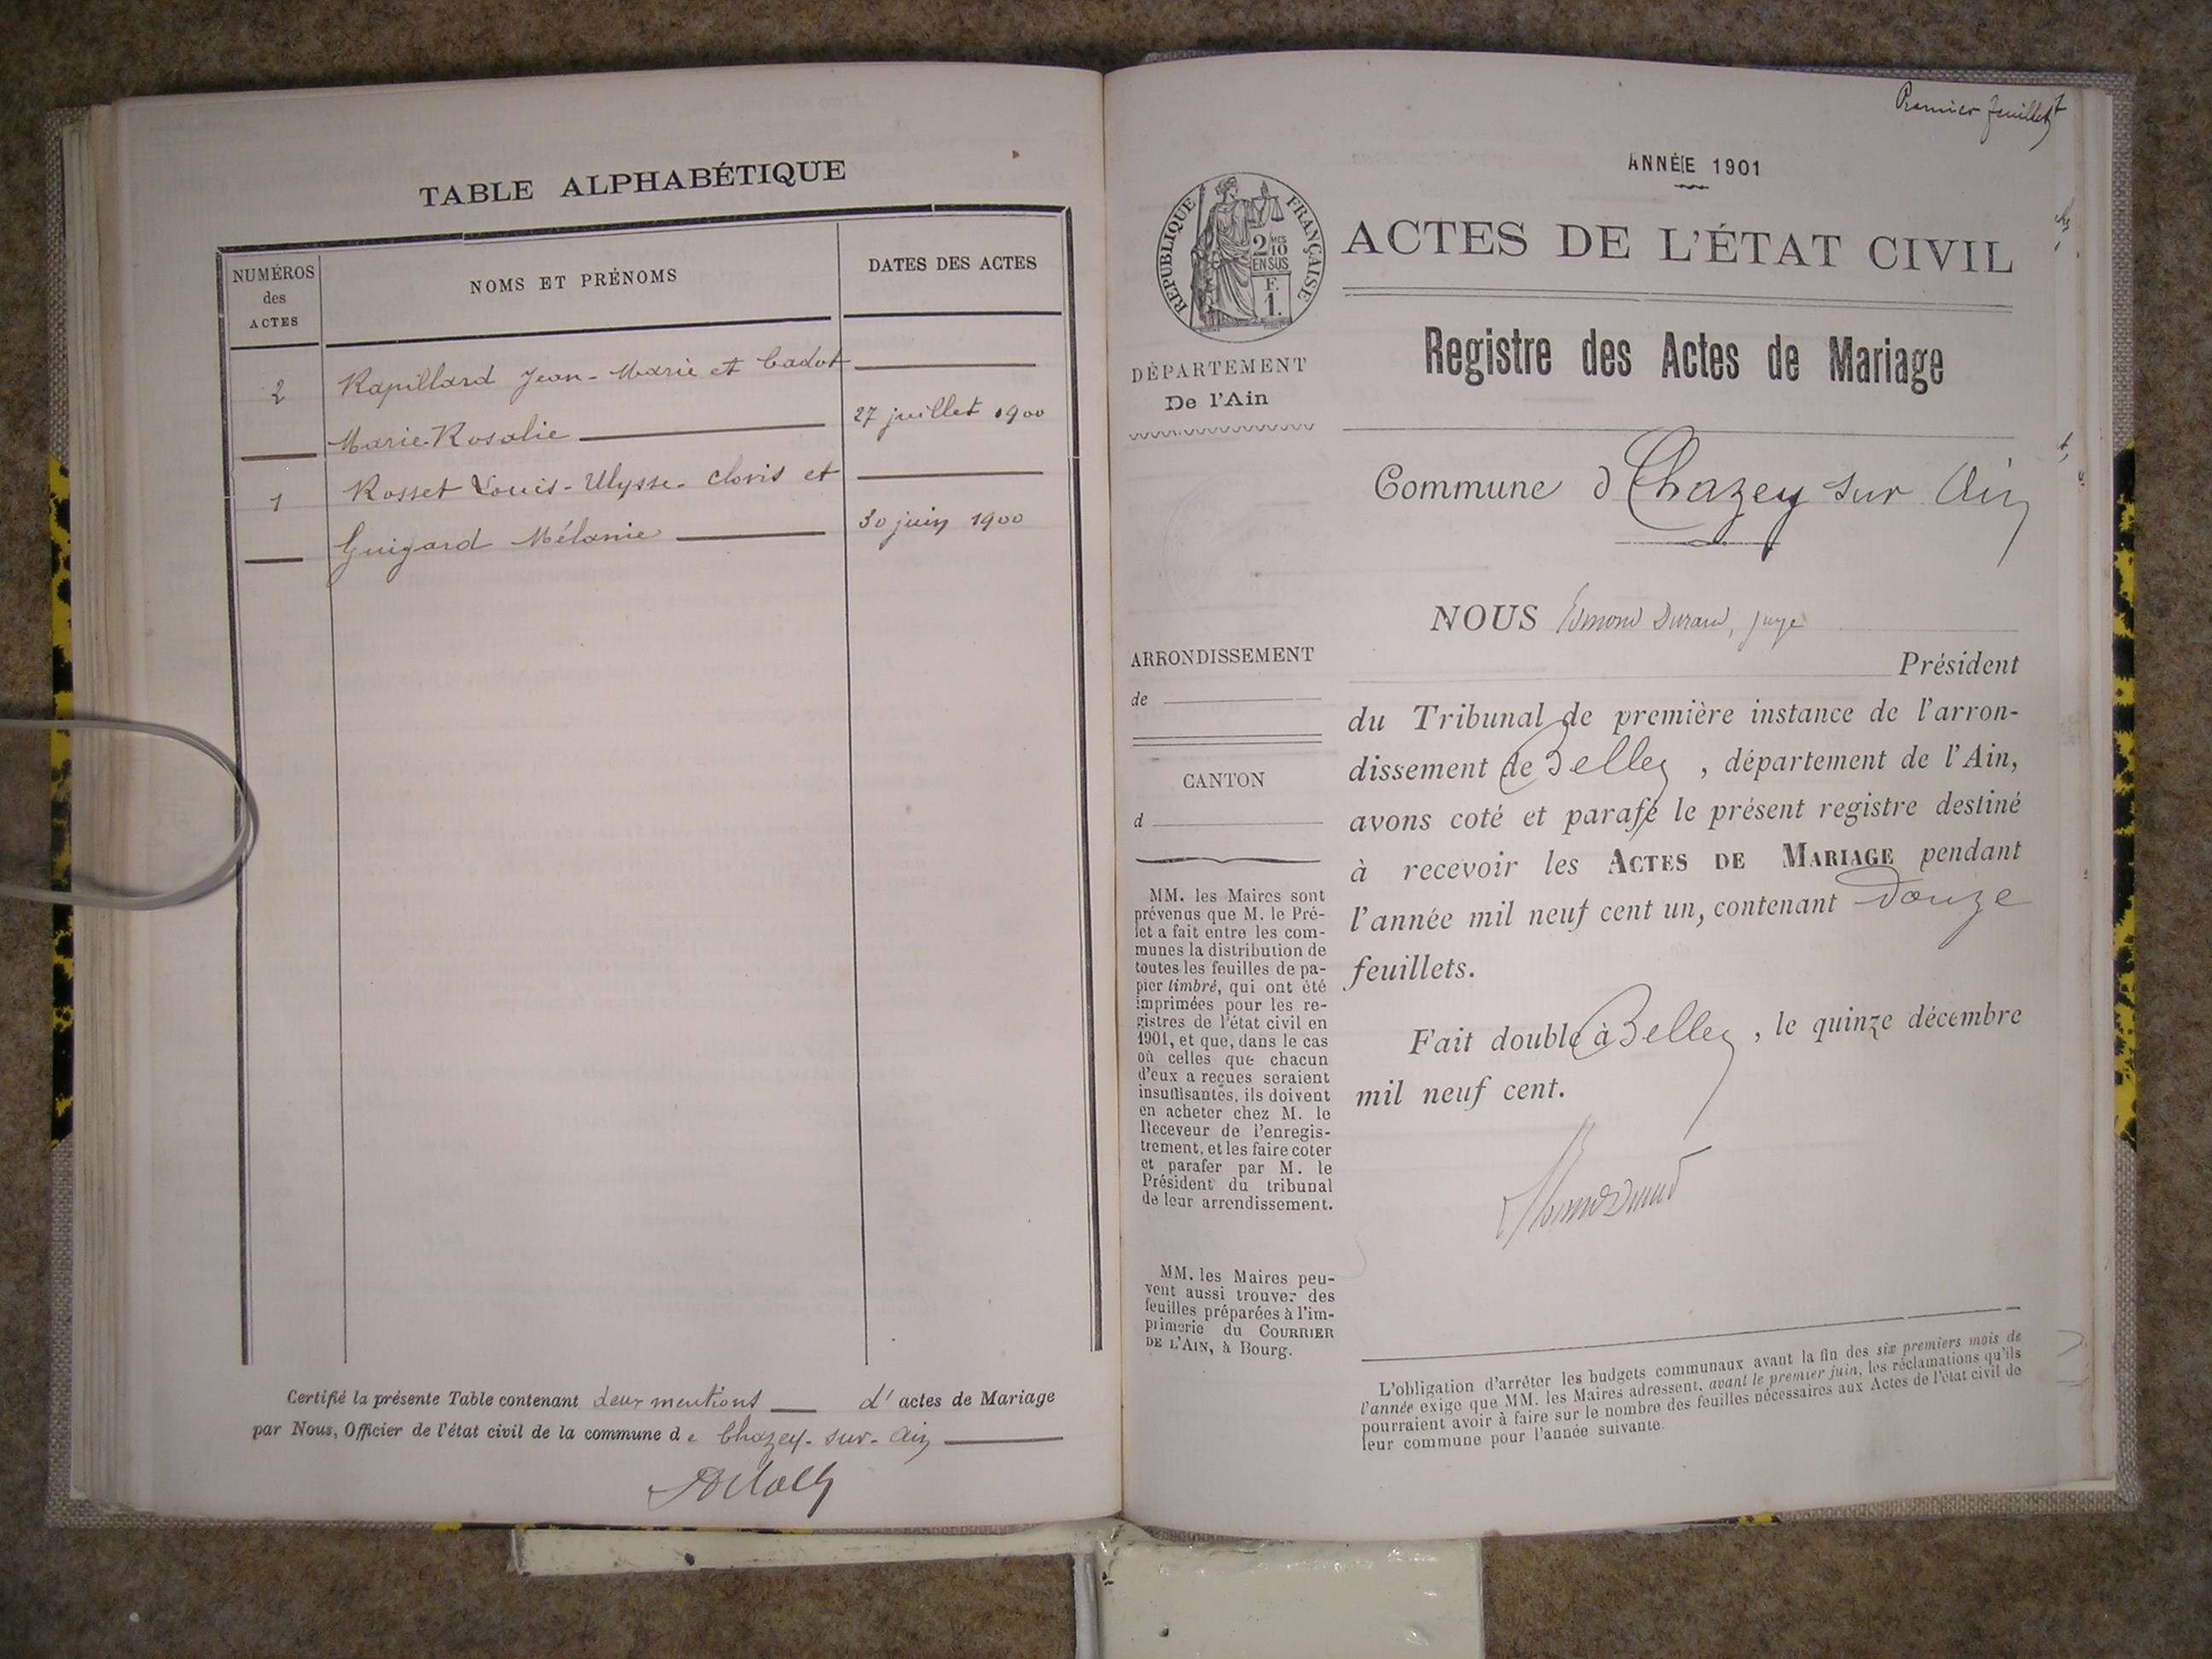 TABLE ALPHABÉTIQUE
NUMÉROS
des
ACTES
NOMS ET PRÉNOMS
DATES DES ACTES
2
Rapillard Jean-Marie et Cadot
Marie-Rosalie
27 juillet 1900
1
Rosset Louis-Ulysse-Clovis et
Guigard Mélanie
30 juin 1900
Certifié la présente Table contenant deux mentions d' actes de Mariage
par Nous, Officier de l'état civil de la commune de Chazey-sur-Ain
Premier feuillet
ANNÉE 1901
RÉPUBLIQUE FRANÇAISE
2 MES
10
EN SUS
F.
1.
ACTES DE L'ÉTAT CIVIL
Registre des Actes de Mariage
DÉPARTEMENT
De l'Ain
Commune d Chazey sur Ain
NOUS Edmond Durand, juge
Président
du Tribunal de première instance de l'arron-
dissement de Belley, département de l'Ain,
avons coté et parafé le présent registre destiné
à recevoir les ACTES DE MARIAGE pendant
l'année mil neuf cent un, contenant Douze
feuillets.
Fait double à Belley, le quinze décembre
mil neuf cent.
Edmond Durand
ARRONDISSEMENT
de
CANTON
d
MM. les Maires sont
prévenus que M. le Pré-
fet a fait entre les com-
munes la distribution de
toutes les feuilles de pa-
pier timbré, qui ont été
imprimées pour les re-
gistres de l'état civil en
1901, et que, dans le cas
où celles que chacun
d'eux a reçues seraient
insuffisantes, ils doivent
en acheter chez M. le
Receveur de l'enregis-
trement, et les faire coter
et parafer par M. le
Président du tribunal
de leur arrondissement.
MM. les Maires peu-
vent aussi trouver des
feuilles préparées à l'im-
primerie du COURRIER
DE L'AIN, à Bourg.
L'obligation d'arrêter les budgets communaux avant la fin des six premiers mois de
l'année exige que MM. les Maires adressent, avant le premier juin, les réclamations qu'ils
pourraient avoir à faire sur le nombre des feuilles nécessaires aux Actes de l'état civil de
leur commune pour l'année suivante.